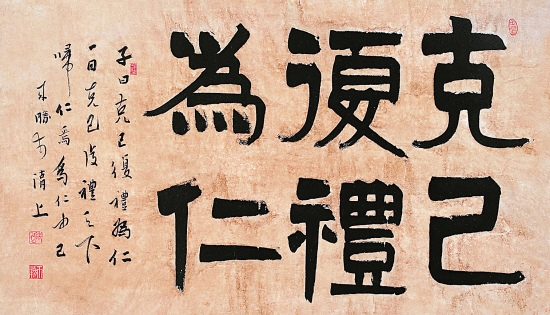 克己
復禮
為仁
子曰克己復禮為仁
一日克己復禮天下
歸仁焉為仁由己
上